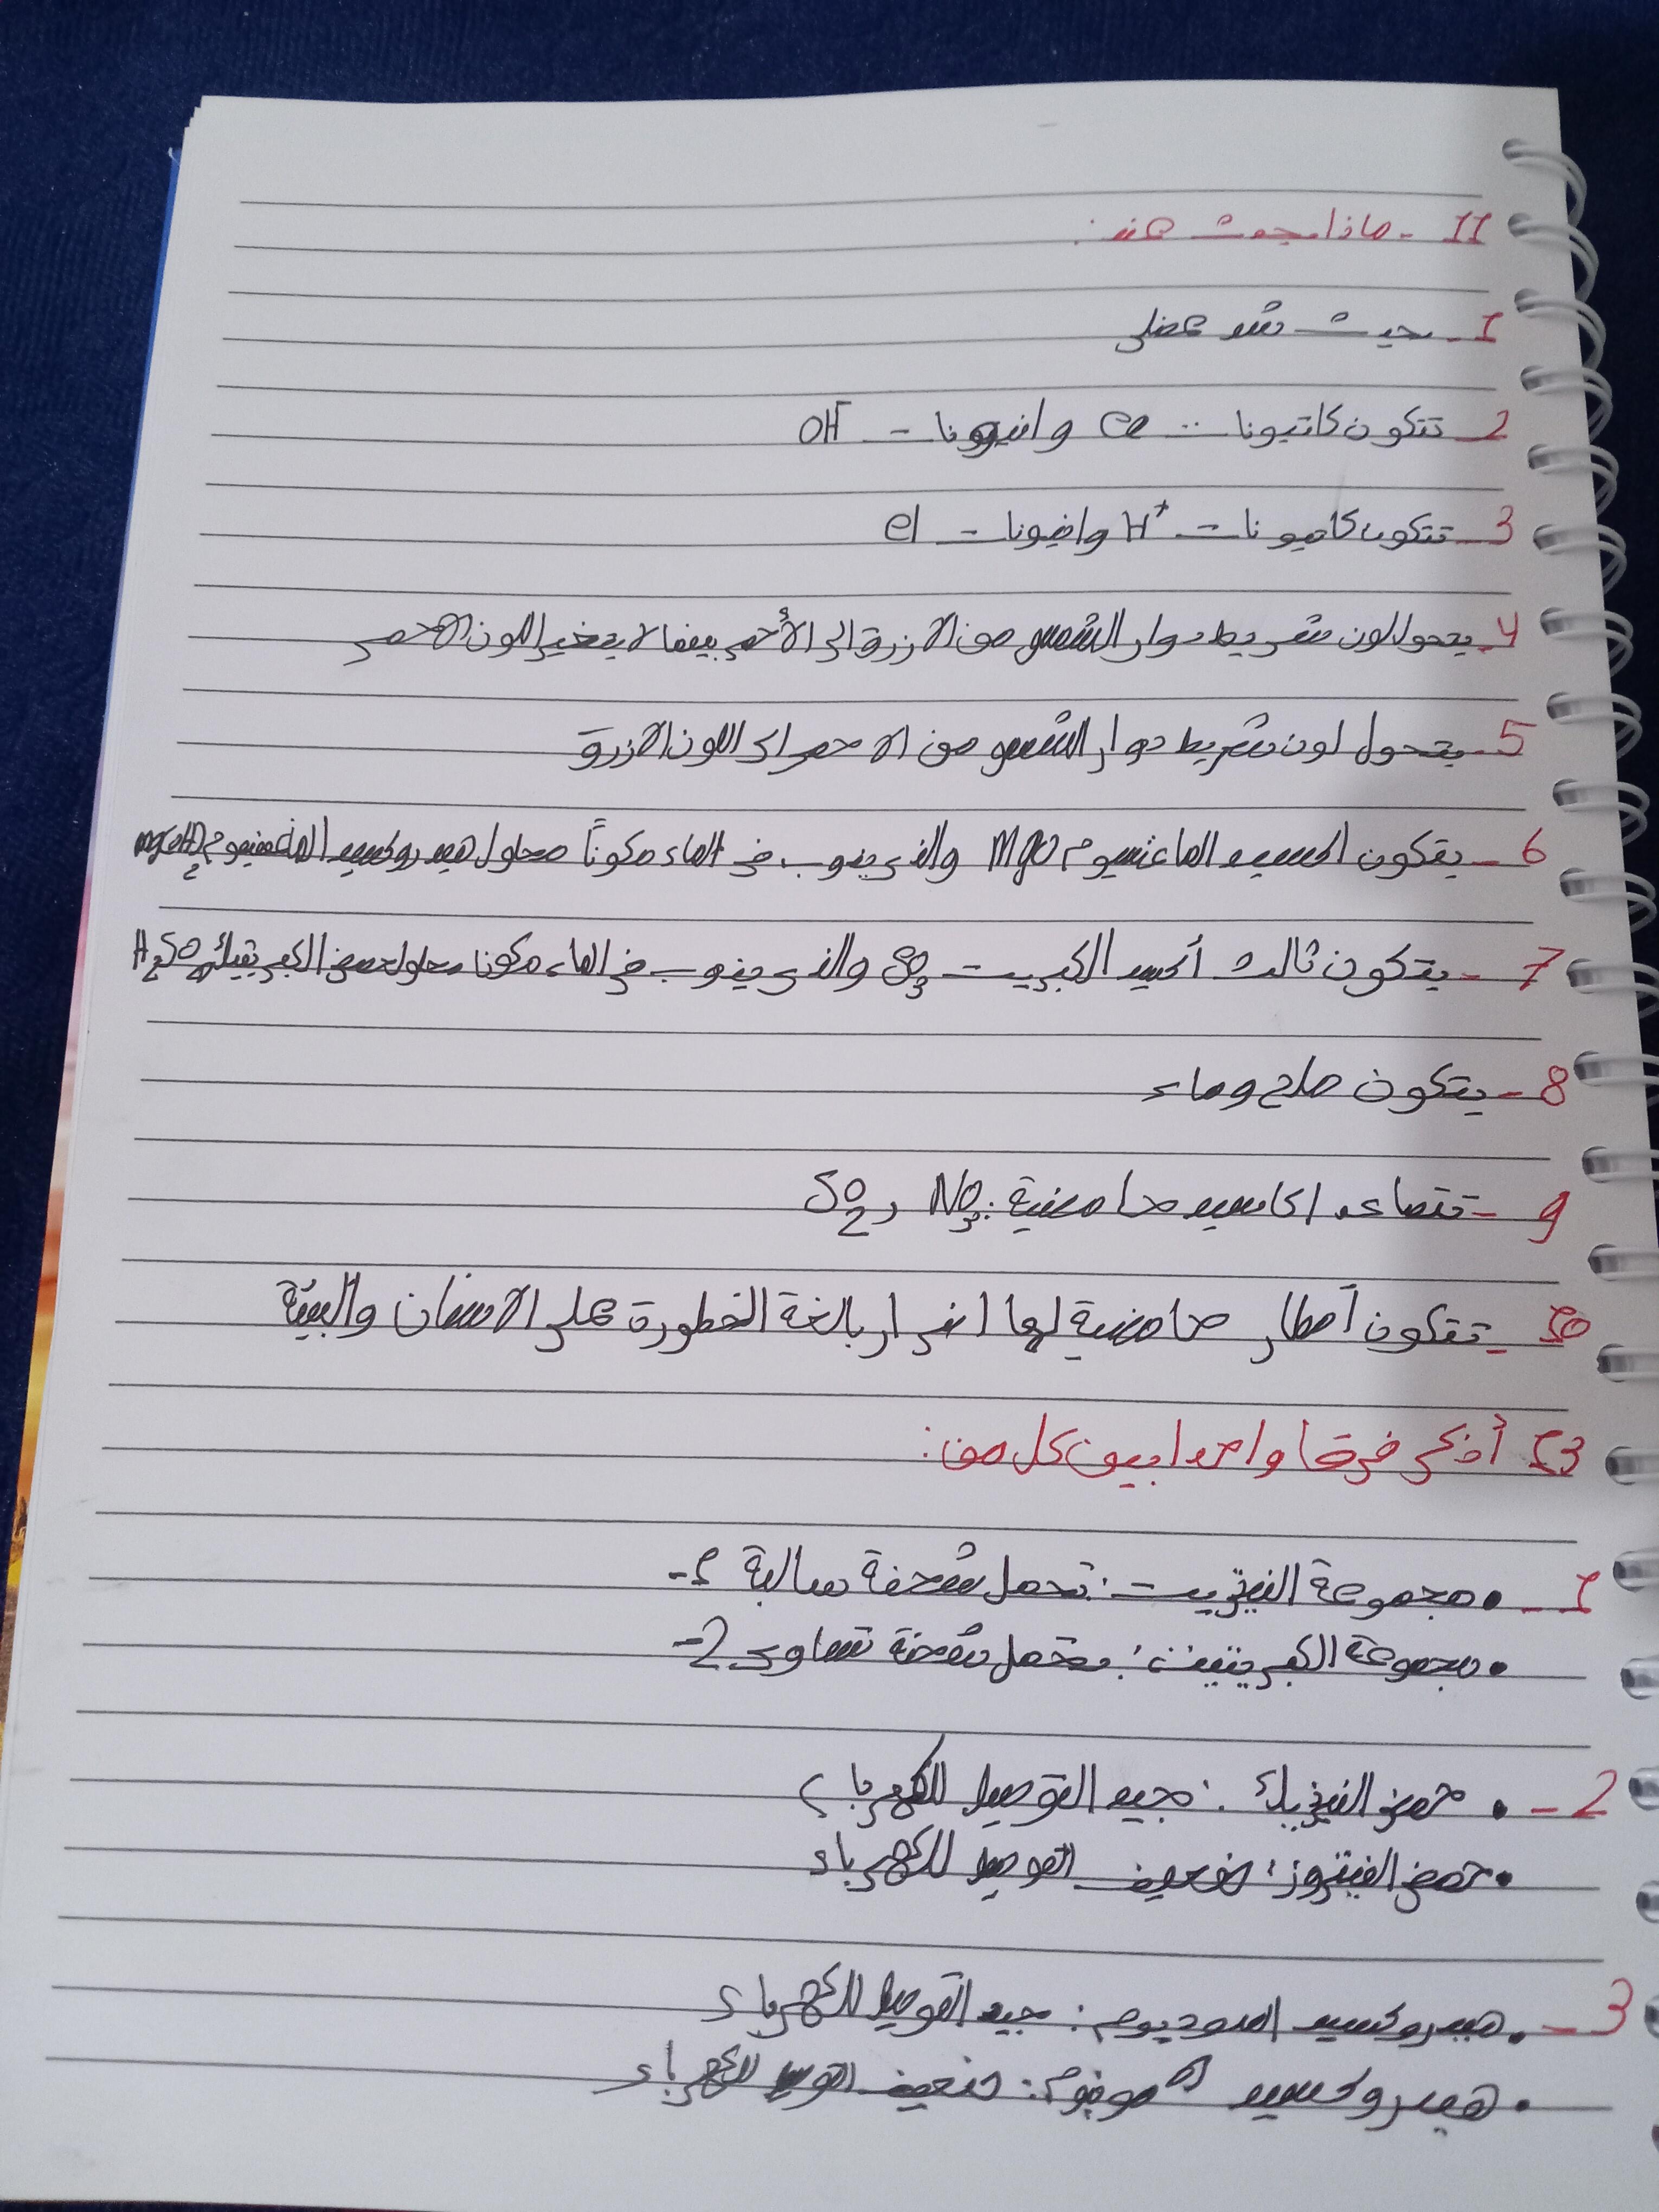 11 - ماذا يحدث عند:
1 - يحدث شد عضلى
2 - تتكون كاتيونات وانيونات OH⁻
3 - تتكون كاتيونات H⁺ وانيونات Cl
4 - يتحول لون شريط دوار الشمس من الازرق الى الأحمر بينما لا يتغير اللون الاحمر
5 - يتحول لون شريط دوار الشمس من الاحمر الى اللون الازرق
6 - يتكون اكسيد الماغنسيوم MgO والذى يذوب فى الماء مكوناً محلول هيدروكسيد الماغنسيوم Mg(OH)₂
7 - يتكون ثالث أكسيد الكبريت SO₃ والذى يذوب فى الماء مكونا محلول حمض الكبريتيك H₂SO₄
8 - يتكون ملح وماء
9 - تتصاعد اكاسيد حامضية: NO₂ و SO₂
10 - تتكون أمطار حامضية لها اضرار بالغة الخطورة على الانسان والبيئة
13 أذكر فرقا واحدا بين كل من:
1 - • مجموعة النيتريت: تحمل شحنة سالبة 1-
• مجموعة الكبريتيت: تحمل شحنة تساوى 2-
2 - • حمض النيتريك: جيد التوصيل للكهرباء
• حمض النيتروز: ضعيف التوصيل للكهرباء
3 - • هيدروكسيد الصوديوم: جيد التوصيل للكهرباء
• هيدروكسيد الامونيوم: ضعيف التوصيل للكهرباء